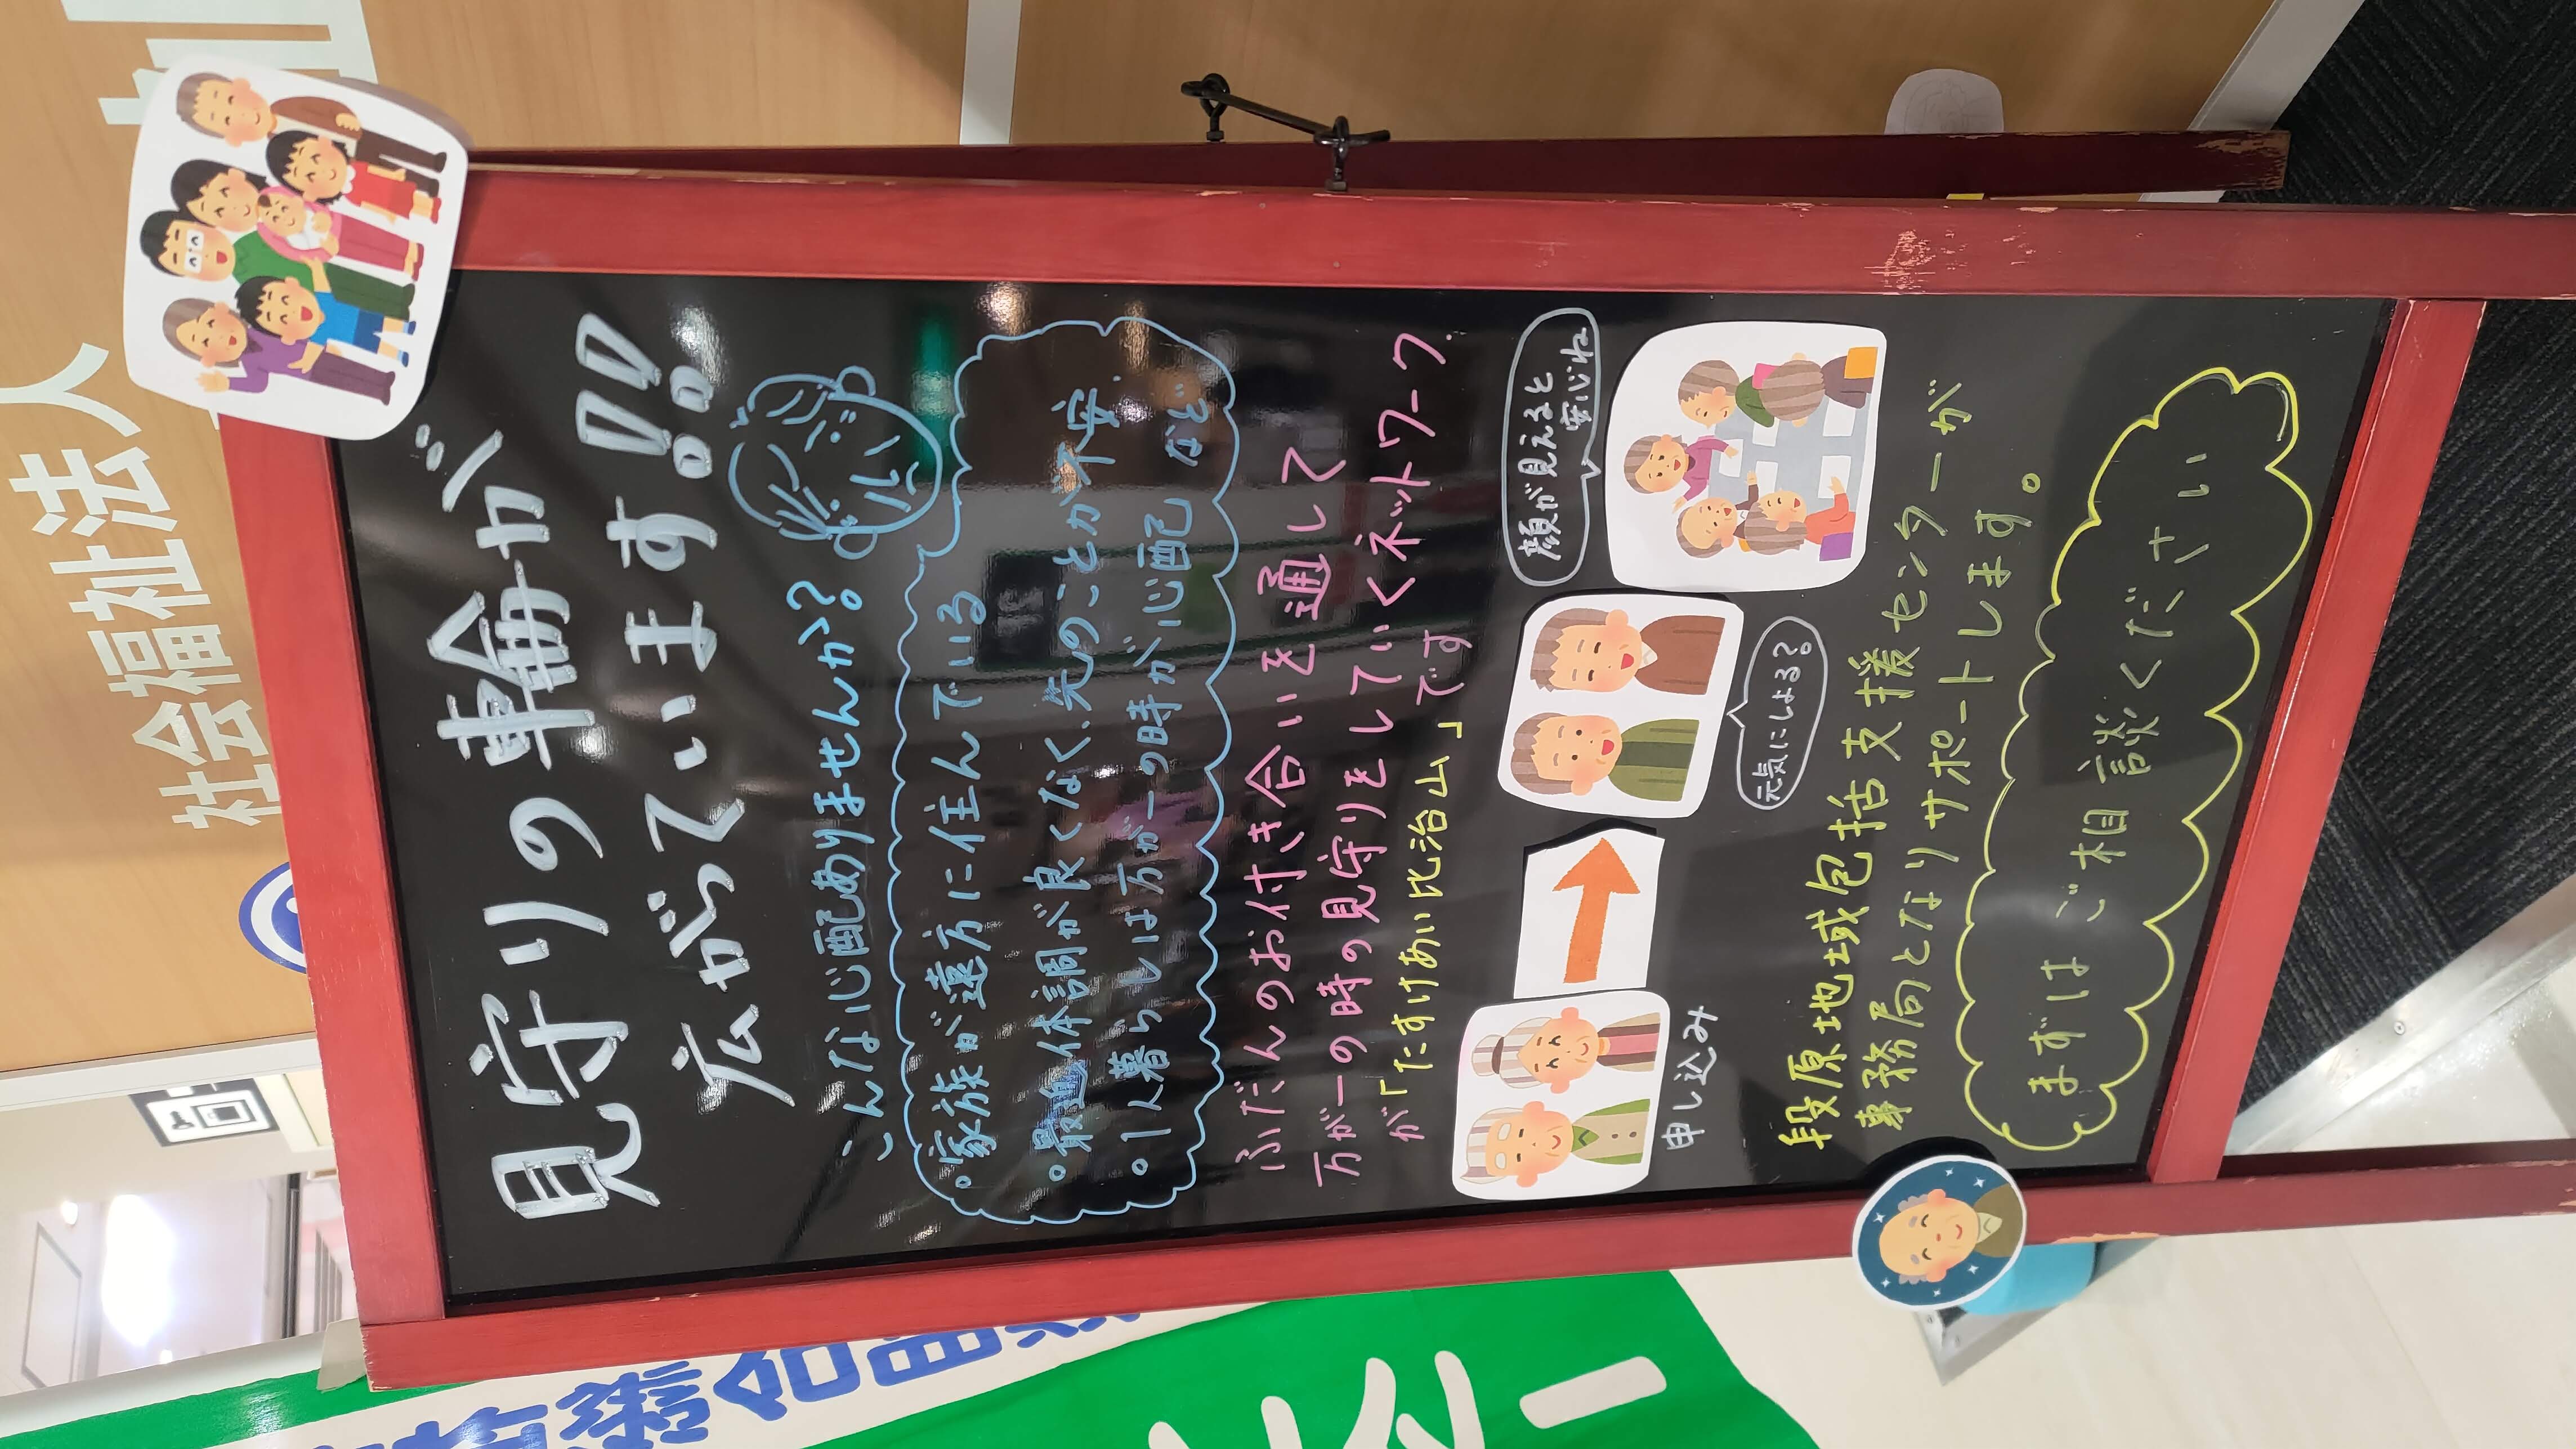 社会福祉法人
見守りの輪が
広がっています!!
こんな心配ありませんか?
・家族が遠方に住んでいる
・最近体調が良くなく、先のことが不安
・1人暮らしは万が一の時が心配 など
ふだんのお付き合いを通して
万が一の時の見守りをしていくネットワーク
が「たすけあい比治山」です
顔が見えると
安心ね
元気にしよる?
申し込み
段原地域包括支援センターが
事務局となりサポートします。
まずはご相談ください